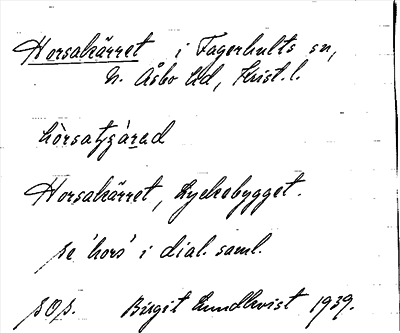 Horsakärret i Fagerhults sn,
N. Åsbo hd, Krist. l.
Horsakärret, Lyckebygget.
se 'hors' i dial. saml.
s. O. s. Birgit Lundkvist 1939.